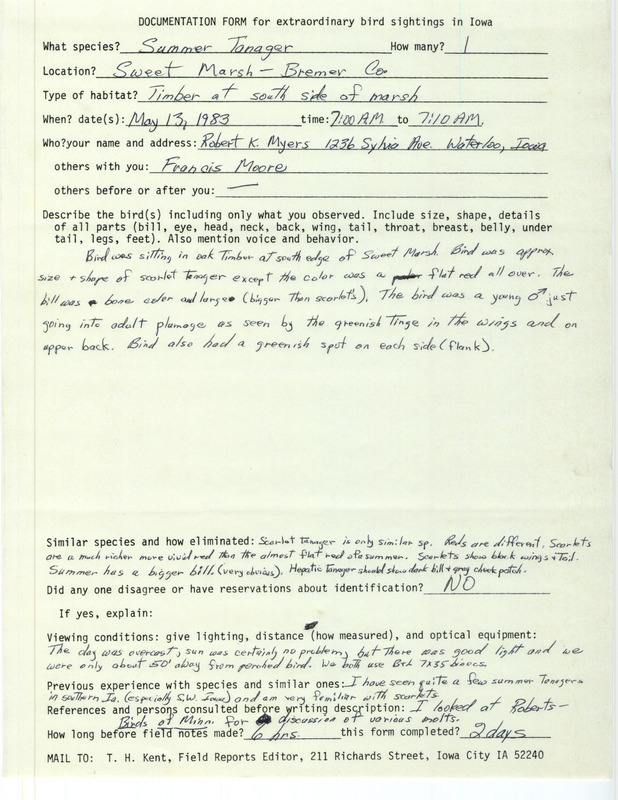 DOCUMENTATION FORM for extraordinary bird sightings in Iowa
What species? Summer Tanager How many? 1
Location? Sweet Marsh - Bremer Co.
Type of habitat? Timber at south side of marsh
When? date(s): May 13, 1983 time: 7:00 AM to 7:10 AM.
Who? your name and address: Robert K. Myers 1236 Sylvia Ave. Waterloo, Iowa
others with you: Francis Moore
others before or after you: —
Describe the bird(s) including only what you observed. Include size, shape, details
of all parts (bill, eye, head, neck, back, wing, tail, throat, breast, belly, under
tail, legs, feet). Also mention voice and behavior.
Bird was sitting in oak Timber at south edge of Sweet Marsh. Bird was approx
size + shape of scarlet Tanager except the color was a flat red all over. The
bill was bone color and large (bigger than scarlet's). The bird was a young ♂ just
going into adult plumage as seen by the greenish Tinge in the wings and on
upper back. Bird also had a greenish spot on each side (flank).
Similar species and how eliminated: Scarlet Tanager is only similar sp. Reds are different, Scarlets
are a much richer more vivid red than the almost flat red of a summer. Scarlets show black wings + Tail.
Summer has a bigger bill. (very obvious). Hepatic Tanager should show dark bill + grey cheek patch.
Did any one disagree or have reservations about identification? NO
If yes, explain:
Viewing conditions: give lighting, distance (how measured), and optical equipment:
The day was overcast, sun was certainly no problem, but there was good light and we
were only about 50' away from perched bird. We both use B+L 7x35 binocs.
Previous experience with species and similar ones: I have seen quite a few summer Tanagers
in southern Ia. (especially S.W. Iowa) and am very familiar with scarlets.
References and persons consulted before writing description: I looked at Roberts-
Birds of Minn. for discussion of various molts.
How long before field notes made? 6 hrs. this form completed? 2 days
MAIL TO: T. H. Kent, Field Reports Editor, 211 Richards Street, Iowa City IA 52240